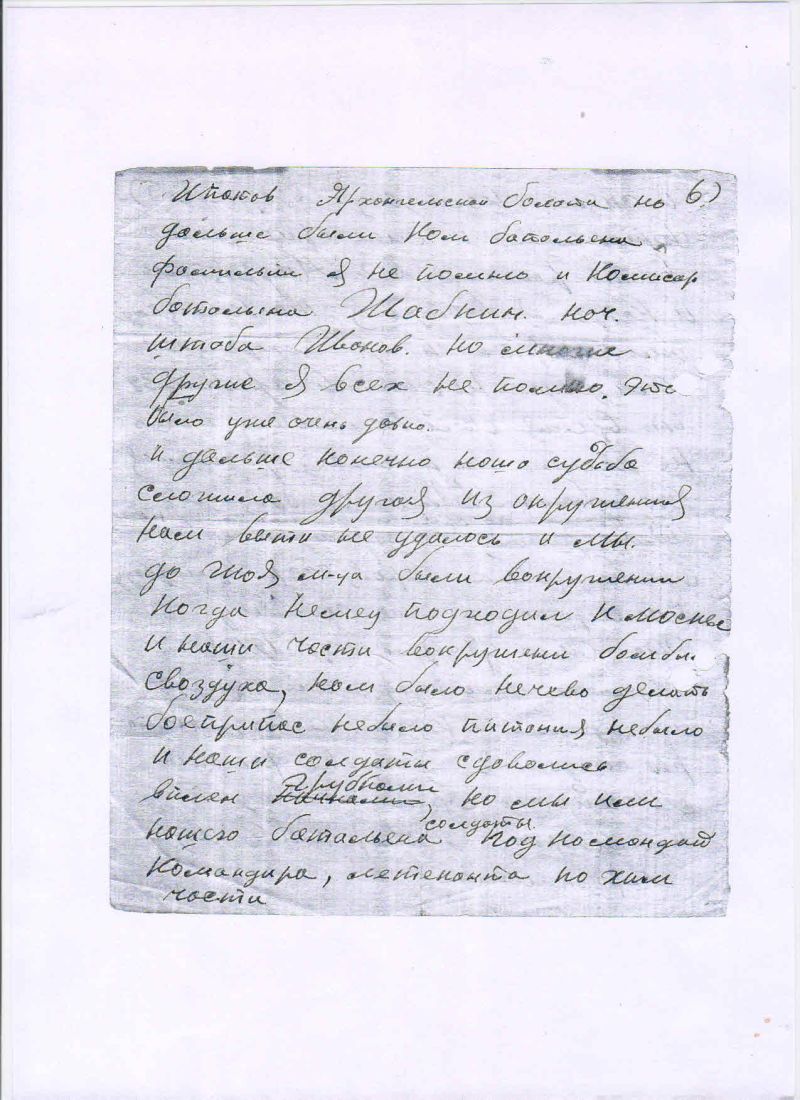 Ипатов Архангельской болоти но 6)
дальше были Ком батальена
фамильи я не помню и Комисар
батальена Шабкин. нач.
штаба Иванов. но многие
другие я всех не помню. Это
было уже очень давно.
и дальше конечно наша судьба
сложила другая из окружения
нам выти не удалось и мы.
до м-ца были вокружении
Когда Немец подходил к москве
и наши части вокружени бомбы.
своздуха, нам было нечево делать
боеприпас небыло питания небыло
и наши солдаты сдовались
вплен группами, но мы или
нашего батальена солдаты под командай
Командира, летенанта по хим
части